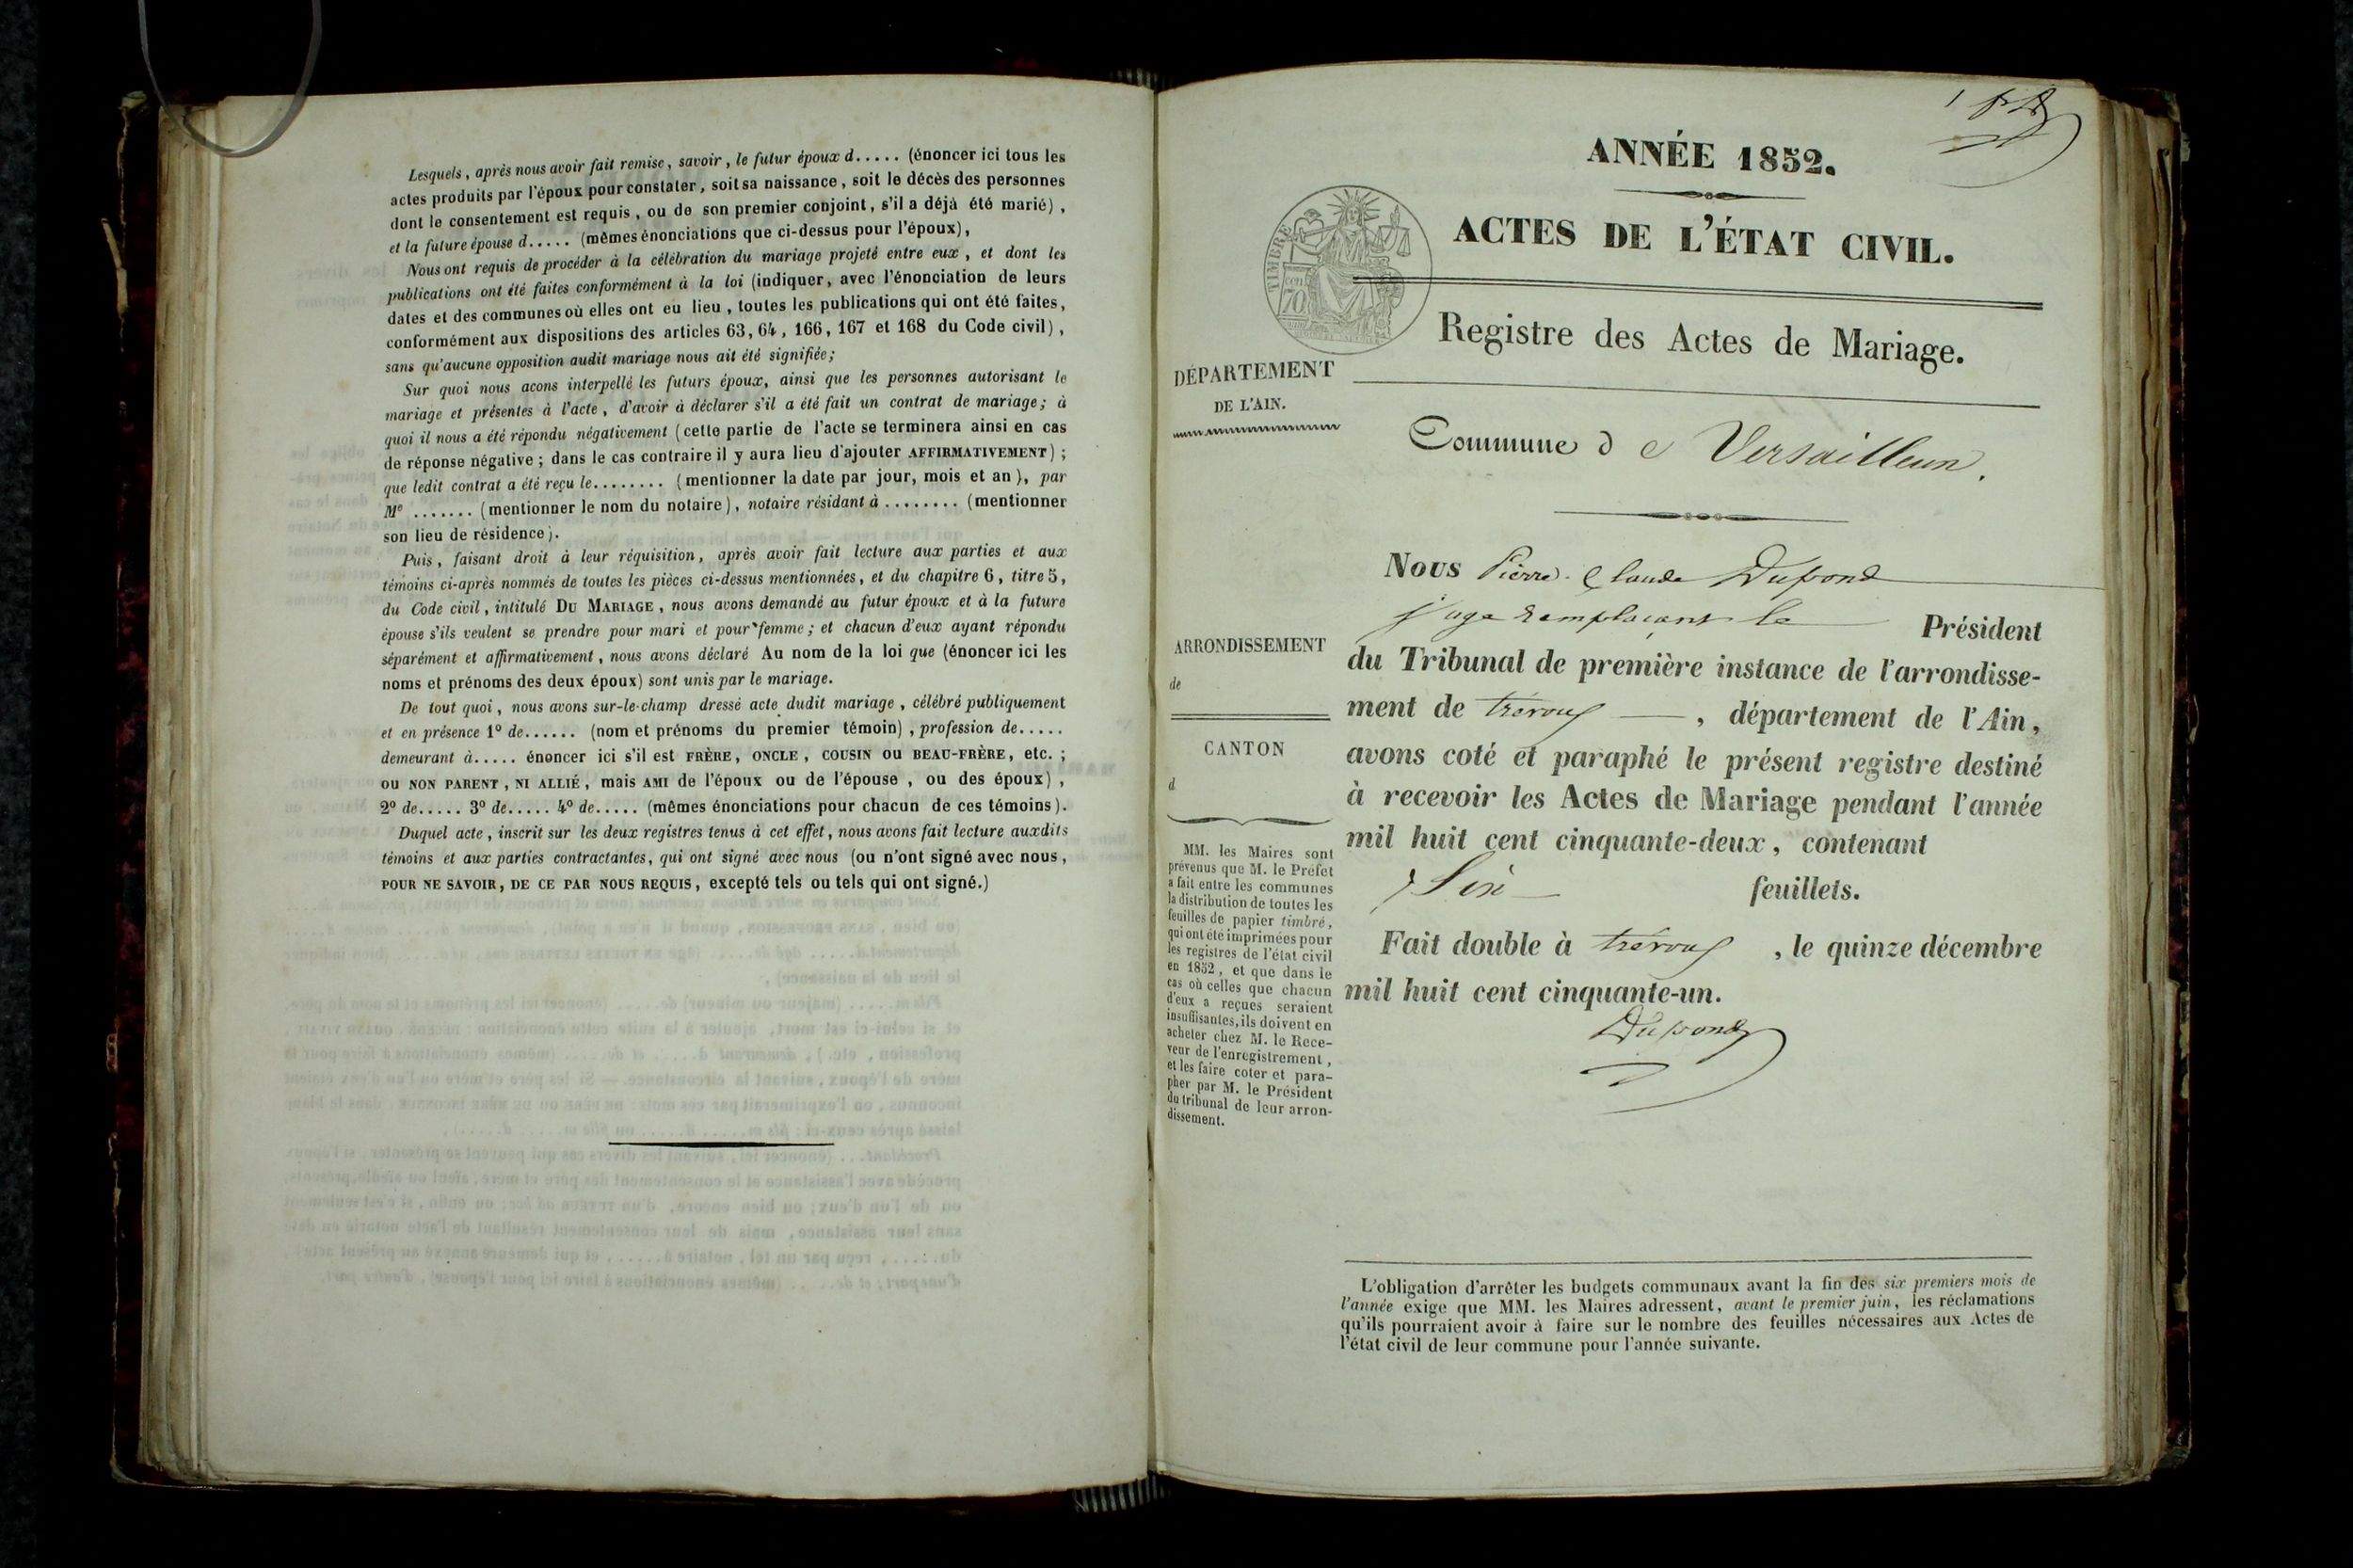 Lesquels, après nous avoir fait remise, savoir, le futur époux d..... (énoncer ici tous les
actes produits par l'époux pour constater, soit sa naissance, soit le décès des personnes
dont le consentement est requis, ou de son premier conjoint, s'il a déjà été marié),
et la future épouse d..... (mêmes énonciations que ci-dessus pour l'époux),
Nous ont requis de procéder à la célébration du mariage projeté entre eux, et dont les
publications ont été faites conformément à la loi (indiquer, avec l'énonciation de leurs
dates et des communes où elles ont eu lieu, toutes les publications qui ont été faites,
conformément aux dispositions des articles 63, 64, 166, 167 et 168 du Code civil),
sans qu'aucune opposition audit mariage nous ait été signifiée;
Sur quoi nous avons interpellé les futurs époux, ainsi que les personnes autorisant le
mariage et présentes à l'acte, d'avoir à déclarer s'il a été fait un contrat de mariage; à
quoi il nous a été répondu négativement (cette partie de l'acte se terminera ainsi en cas
de réponse négative; dans le cas contraire il y aura lieu d'ajouter AFFIRMATIVEMENT);
que ledit contrat a été reçu le........ (mentionner la date par jour, mois et an), par
Me ....... (mentionner le nom du notaire), notaire résidant à ........ (mentionner
son lieu de résidence).
Puis, faisant droit à leur réquisition, après avoir fait lecture aux parties et aux
témoins ci-après nommés de toutes les pièces ci-dessus mentionnées, et du chapitre 6, titre 5,
du Code civil, intitulé DU MARIAGE, nous avons demandé au futur époux et à la future
épouse s'ils veulent se prendre pour mari et pour femme; et chacun d'eux ayant répondu
séparément et affirmativement, nous avons déclaré Au nom de la loi que (énoncer ici les
noms et prénoms des deux époux) sont unis par le mariage.
De tout quoi, nous avons sur-le-champ dressé acte dudit mariage, célébré publiquement
et en présence 1º de...... (nom et prénoms du premier témoin), profession de.....
demeurant à..... énoncer ici s'il est FRÈRE, ONCLE, COUSIN OU BEAU-FRÈRE, etc.;
OU NON PARENT, NI ALLIÉ, mais AMI de l'époux ou de l'épouse, ou des époux),
2º de..... 3º de..... 4º de..... (mêmes énonciations pour chacun de ces témoins).
Duquel acte, inscrit sur les deux registres tenus à cet effet, nous avons fait lecture auxdits
témoins et aux parties contractantes, qui ont signé avec nous (ou n'ont signé avec nous,
POUR NE SAVOIR, DE CE PAR NOUS REQUIS, excepté tels ou tels qui ont signé.)
ANNÉE 1852.
ACTES DE L'ÉTAT CIVIL.
TIMBRE
70
Registre des Actes de Mariage.
DÉPARTEMENT
DE L'AIN.
Commune de Versailleux.
ARRONDISSEMENT
de
CANTON
d
MM. les Maires sont
prévenus que M. le Préfet
a fait entre les communes
la distribution de toutes les
feuilles de papier timbré,
qui ont été imprimées pour
les registres de l'état civil
en 1852, et que dans le
cas où celles que chacun
d'eux a reçues seraient
insuffisantes, ils doivent en
acheter chez M. le Rece-
veur de l'enregistrement,
et les faire coter et para-
pher par M. le Président
du tribunal de leur arron-
dissement.
NOUS Pierre Claude Dupond
juge remplaçant le Président
du Tribunal de première instance de l'arrondisse-
ment de trévoux, département de l'Ain,
avons coté et paraphé le présent registre destiné
à recevoir les Actes de Mariage pendant l'année
mil huit cent cinquante-deux, contenant
Six feuillets.
Fait double à trévoux, le quinze décembre
mil huit cent cinquante-un.
Dupond
L'obligation d'arrêter les budgets communaux avant la fin des six premiers mois de
l'année exige que MM. les Maires adressent, avant le premier juin, les réclamations
qu'ils pourraient avoir à faire sur le nombre des feuilles nécessaires aux Actes de
l'état civil de leur commune pour l'année suivante.